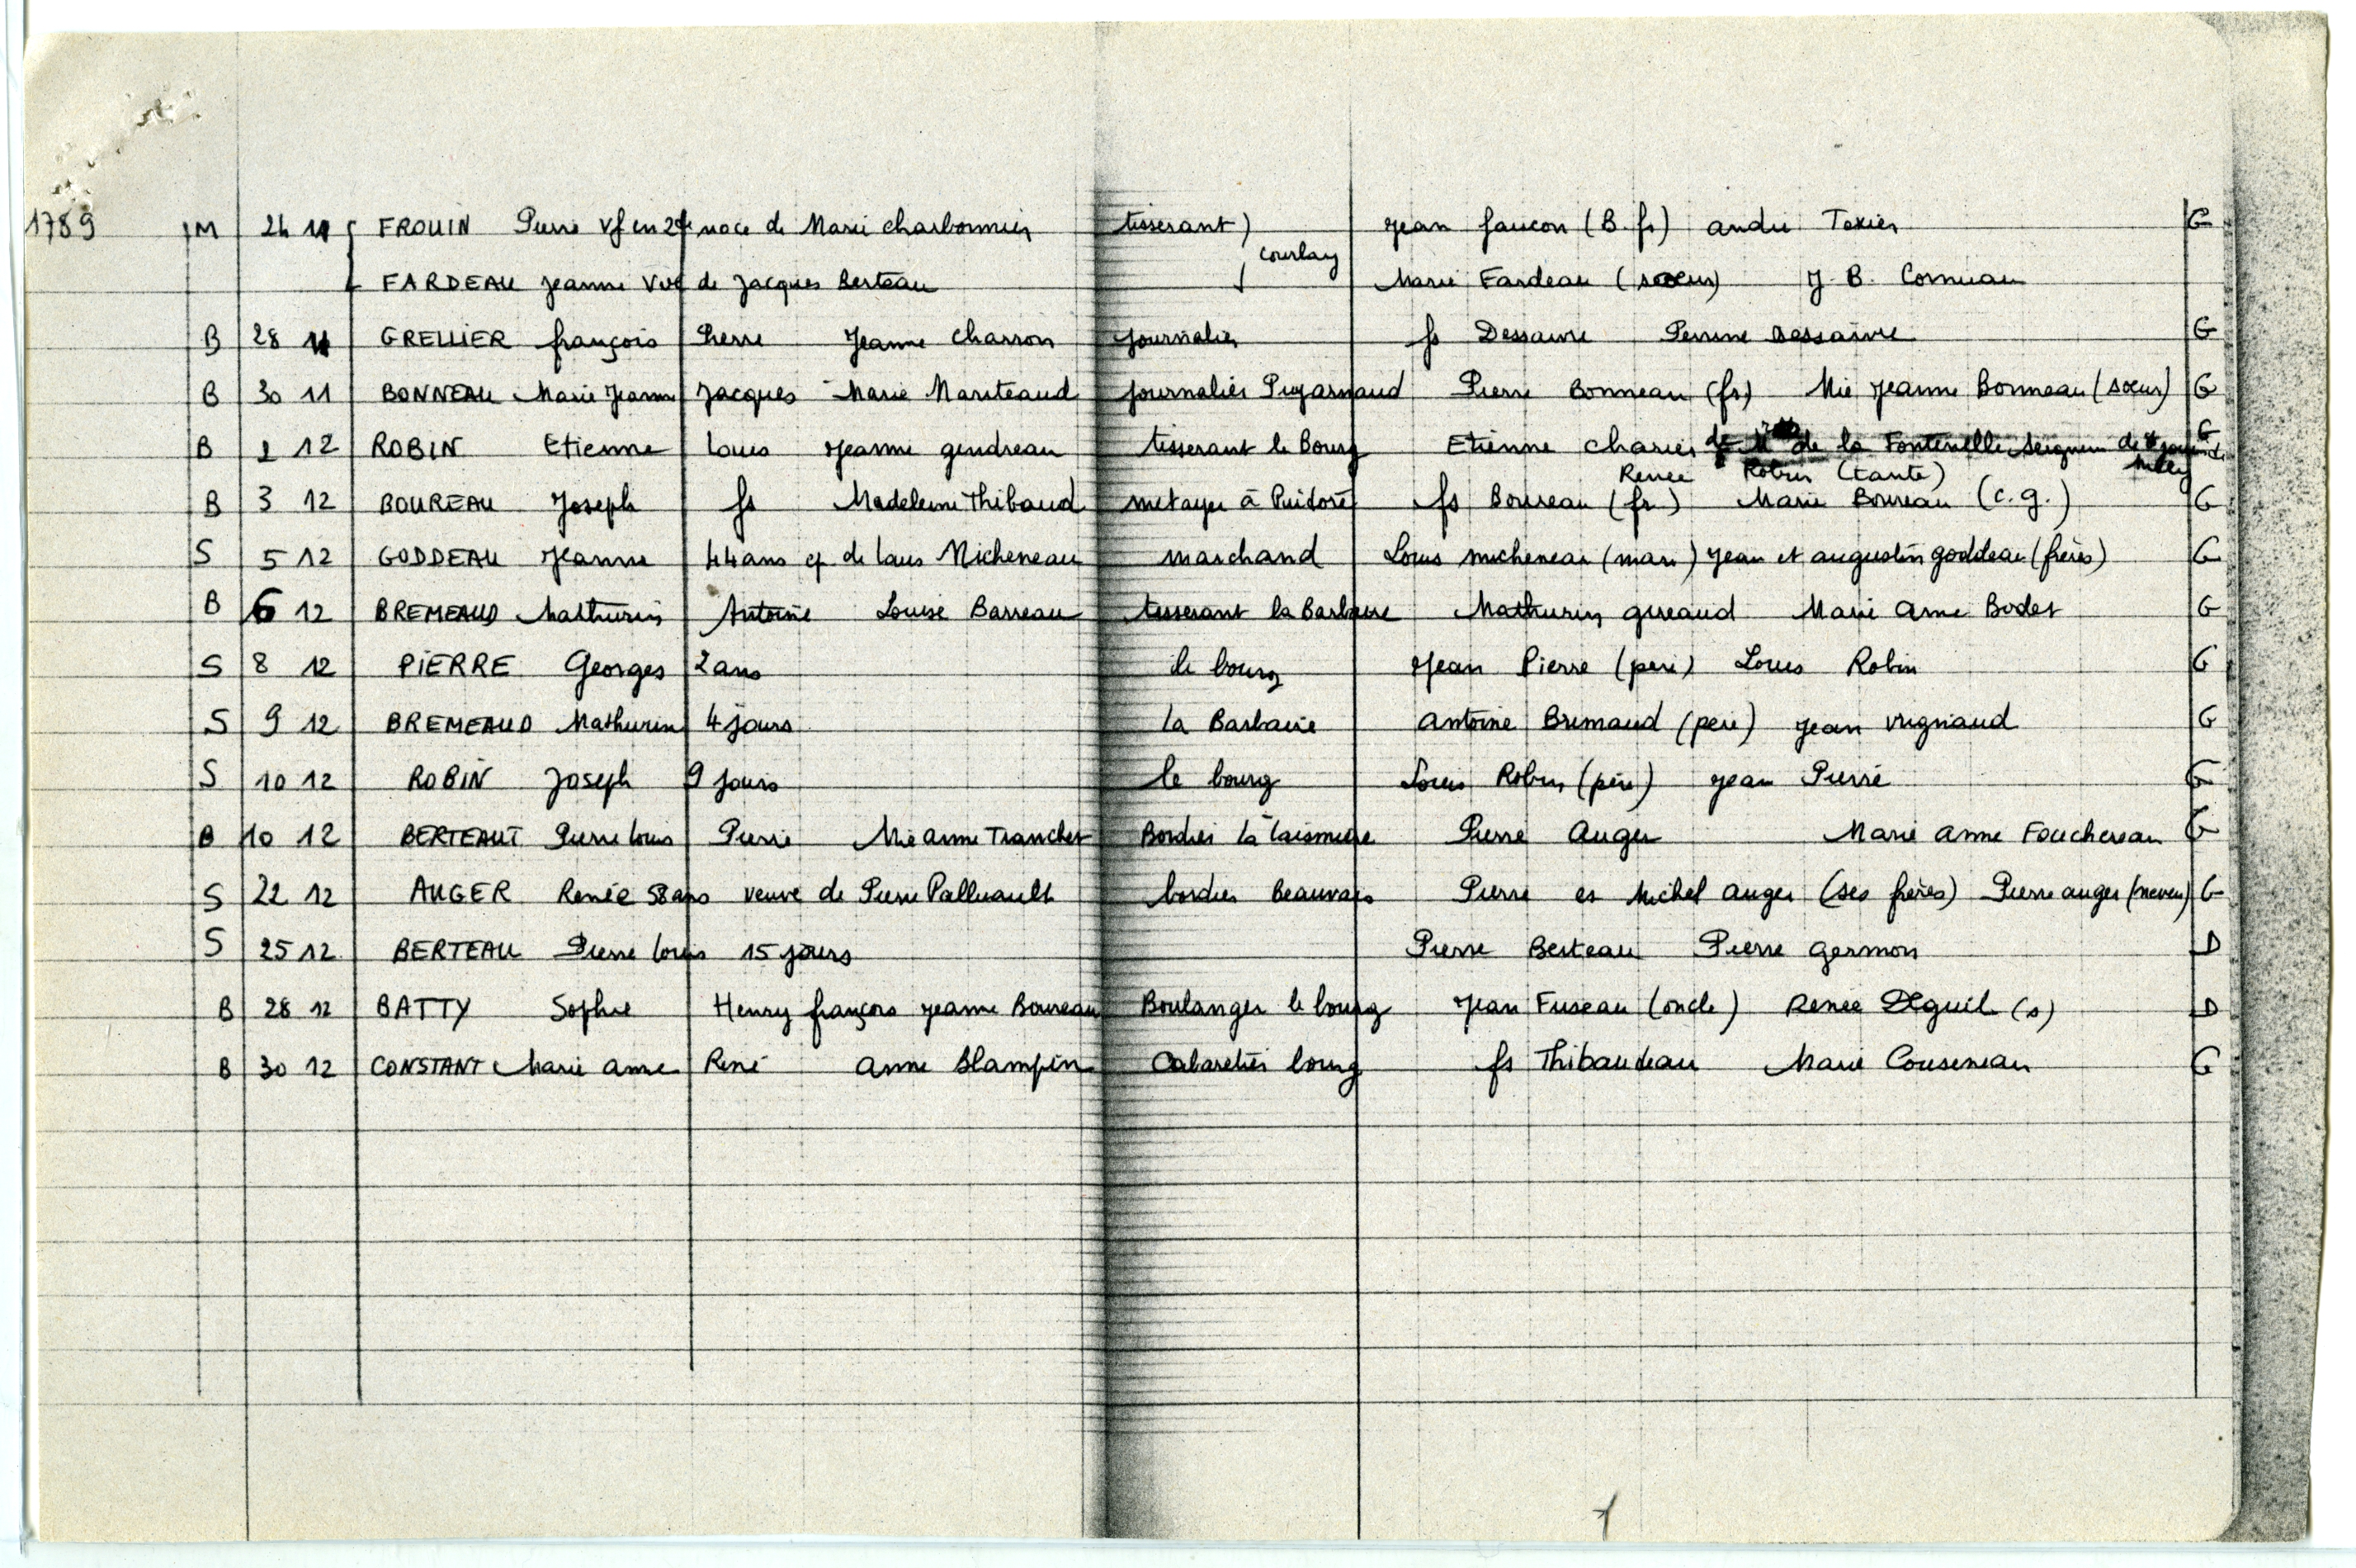 1789 M 24 11 FROUIN Pierre Vf en 2de noce de Marie Charbonnier tisserant Courlay Jean faucon (B. fr) andre Texier G
FARDEAU Jeanne Vve de Jacques Berteau Marie Fardeau (soeur) J. B. Cornuau
B 28 11 GRELLIER françois Pierre Jeanne Charron journalier fs Dessaivre Perrine Dessaivre G
B 30 11 BONNEAU Marie Jeanne Jacques Marie Marsteaud journalier Pugarnaud Pierre Bonneau (fr) Mie Jeanne Bonneau (soeur) G
B 1 12 ROBIN Etienne Louis Jeanne gendreau tisserant le Bourg Etienne Charles de la Fontenelle Seigneur de G
Renee Robin (tante)
B 3 12 BOUREAU Joseph fs Madeleine Thibaud metayer à Puidoré fs Boureau (fr) Marie Boureau (c.g.) G
S 5 12 GODDEAU Jeanne 44 ans ep de Louis Micheneau marchand Louis micheneau (mari) Jean et augustin goddeau (frères) G
B 6 12 BREMEAUD Mathurin Antoine Louise Barreau tisserant la Barbaire Mathurin gireaud Marie Anne Bodet G
S 8 12 PIERRE Georges 2 ans le bourg Jean Pierre (pere) Louis Robin G
S 9 12 BREMEAUD Mathurin 4 jours la Barbaire Antoine Bremaud (pere) Jean vrignaud G
S 10 12 ROBIN Joseph 9 jours le bourg Louis Robin (père) Jean Pierre G
B 10 12 BERTEAUT Pierre Louis Pierre Mie Anne Tranchet Bordier Pierre Auger Marie Anne Fouchereau G
S 22 12 AUGER Renée 58 ans veuve de Pierre Palluault bordier beauvais Pierre et Michel Auger (ses frères) Pierre auger (neveu) G
S 25 12 BERTEAU Pierre Louis 15 jours Pierre Berteau Pierre germon D
B 28 12 BATTY Sophie Henry françois Jeanne Boureau Boulanger le bourg Jean Fuseau (oncle) Renée Deguil (s) D
B 30 12 CONSTANT Marie anne René Anne Blampin Cabaretier bourg fs Thibaudeau Marie Couseneau G